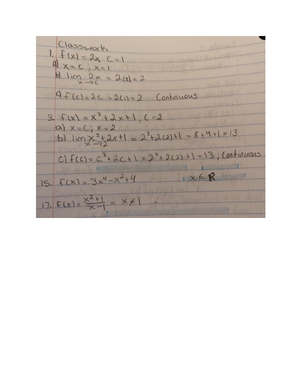 Classwork
1. f(x) = 2x, c = 1
a) x = c; x = 1
b) lim 2x = 2(1) = 2
x→c
c) f(c) = 2c = 2(1) = 2 Continuous
3. f(x) = x³ + 2x + 1, c = 2
a) x = c; x = 2
b) lim x³ + 2x + 1 = 2³ + 2(2) + 1 = 8 + 4 + 1 = 13
x→2
c) f(c) = c³ + 2c + 1 = 2³ + 2(2) + 1 = 13, Continuous
15. f(x) = 3x⁴ - x² + 4 x ∈ R
17. f(x) = x² + 1 / x - 1 = x ≠ 1